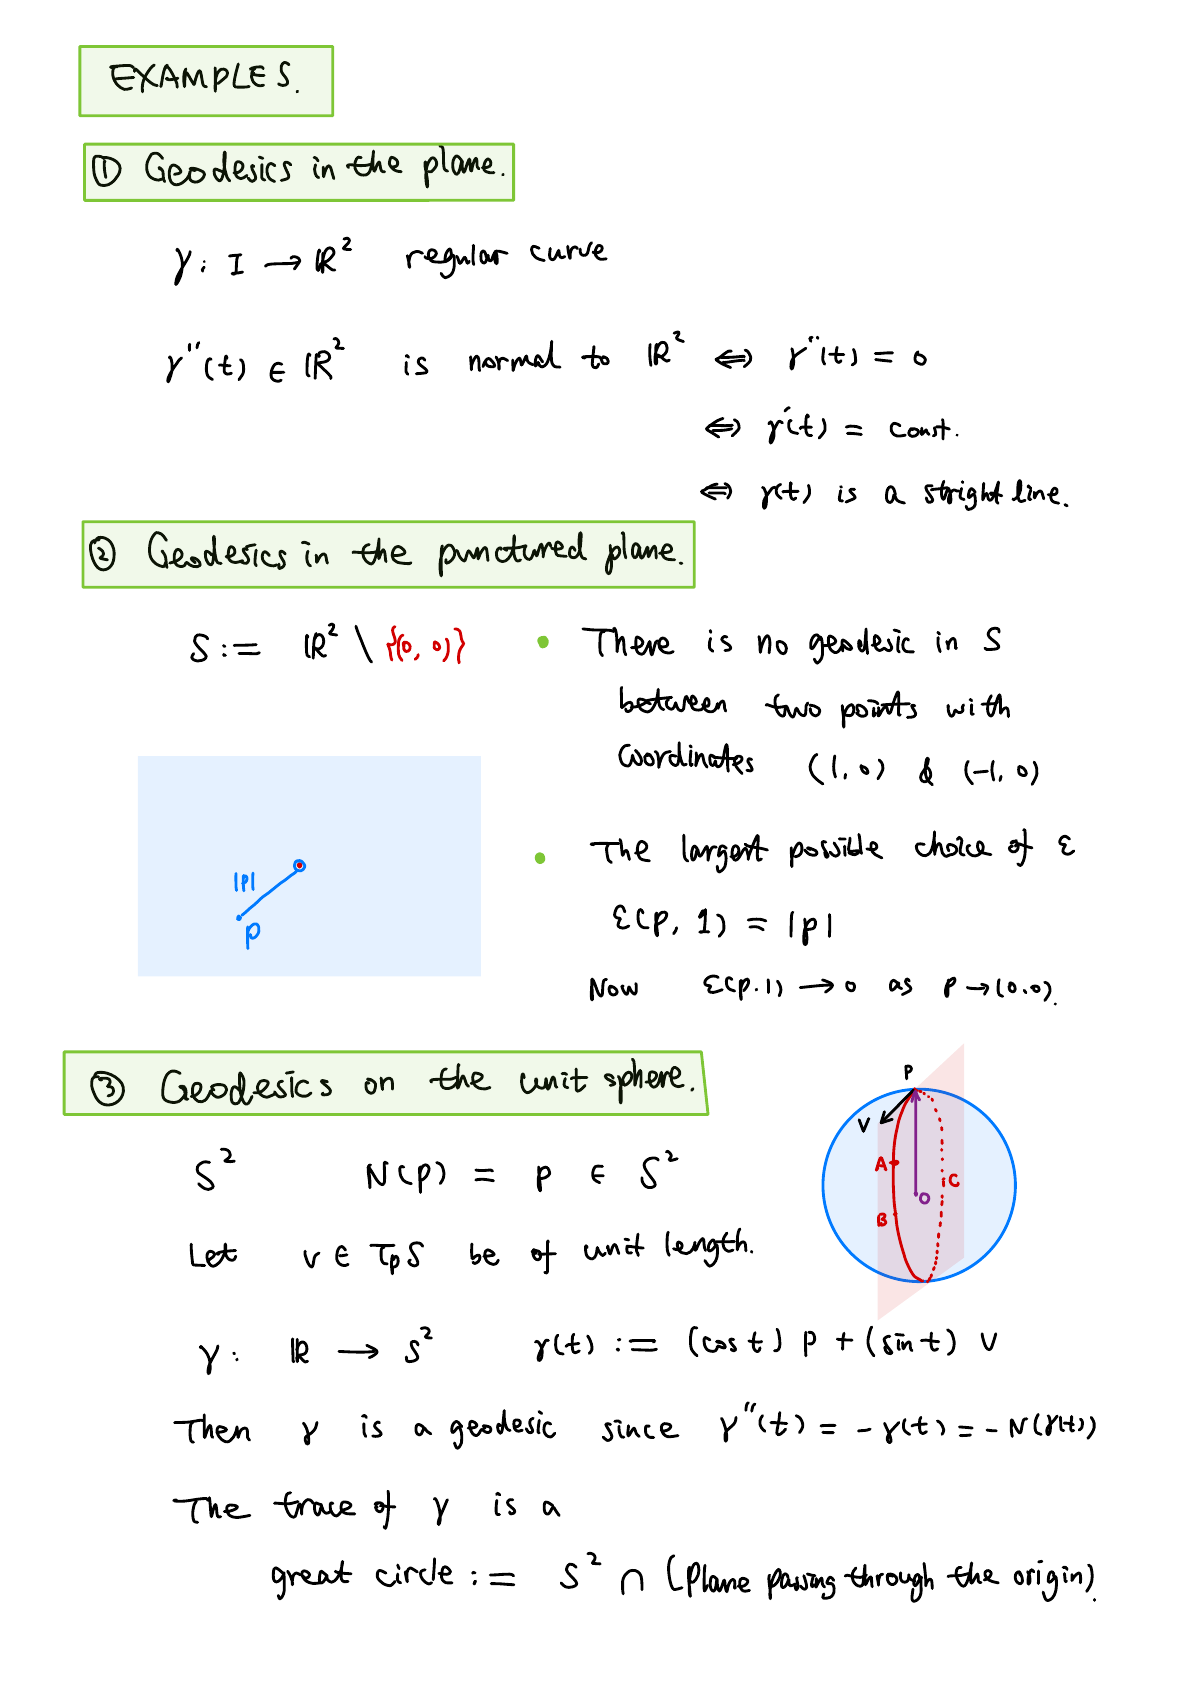 EXAMPLES.
① Geodesics in the plane.
γ: I → ℝ² regular curve
γ''(t) ∈ ℝ² is normal to ℝ² ⇔ γ''(t) = 0
⇔ γ'(t) = const.
⇔ γ(t) is a stright line.
② Geodesics in the punctured plane.
S := ℝ² \ {(0, 0)}
• There is no geodesic in S
between two points with
coordinates (1, 0) & (-1, 0)
|p|
p
• The largest possible choice of ε
ε(p, 1) = |p|
Now ε(p.1) → 0 as p → (0.0).
③ Geodesics on the unit sphere.
P
V
A
C
O
B
S² N(p) = p ∈ S²
Let v ∈ TpS be of unit length.
γ: ℝ → S² γ(t) := (cos t) p + (sin t) v
Then γ is a geodesic since γ''(t) = - γ(t) = - N(γ(t))
The trace of γ is a
great circle := S² ∩ (Plane passing through the origin).